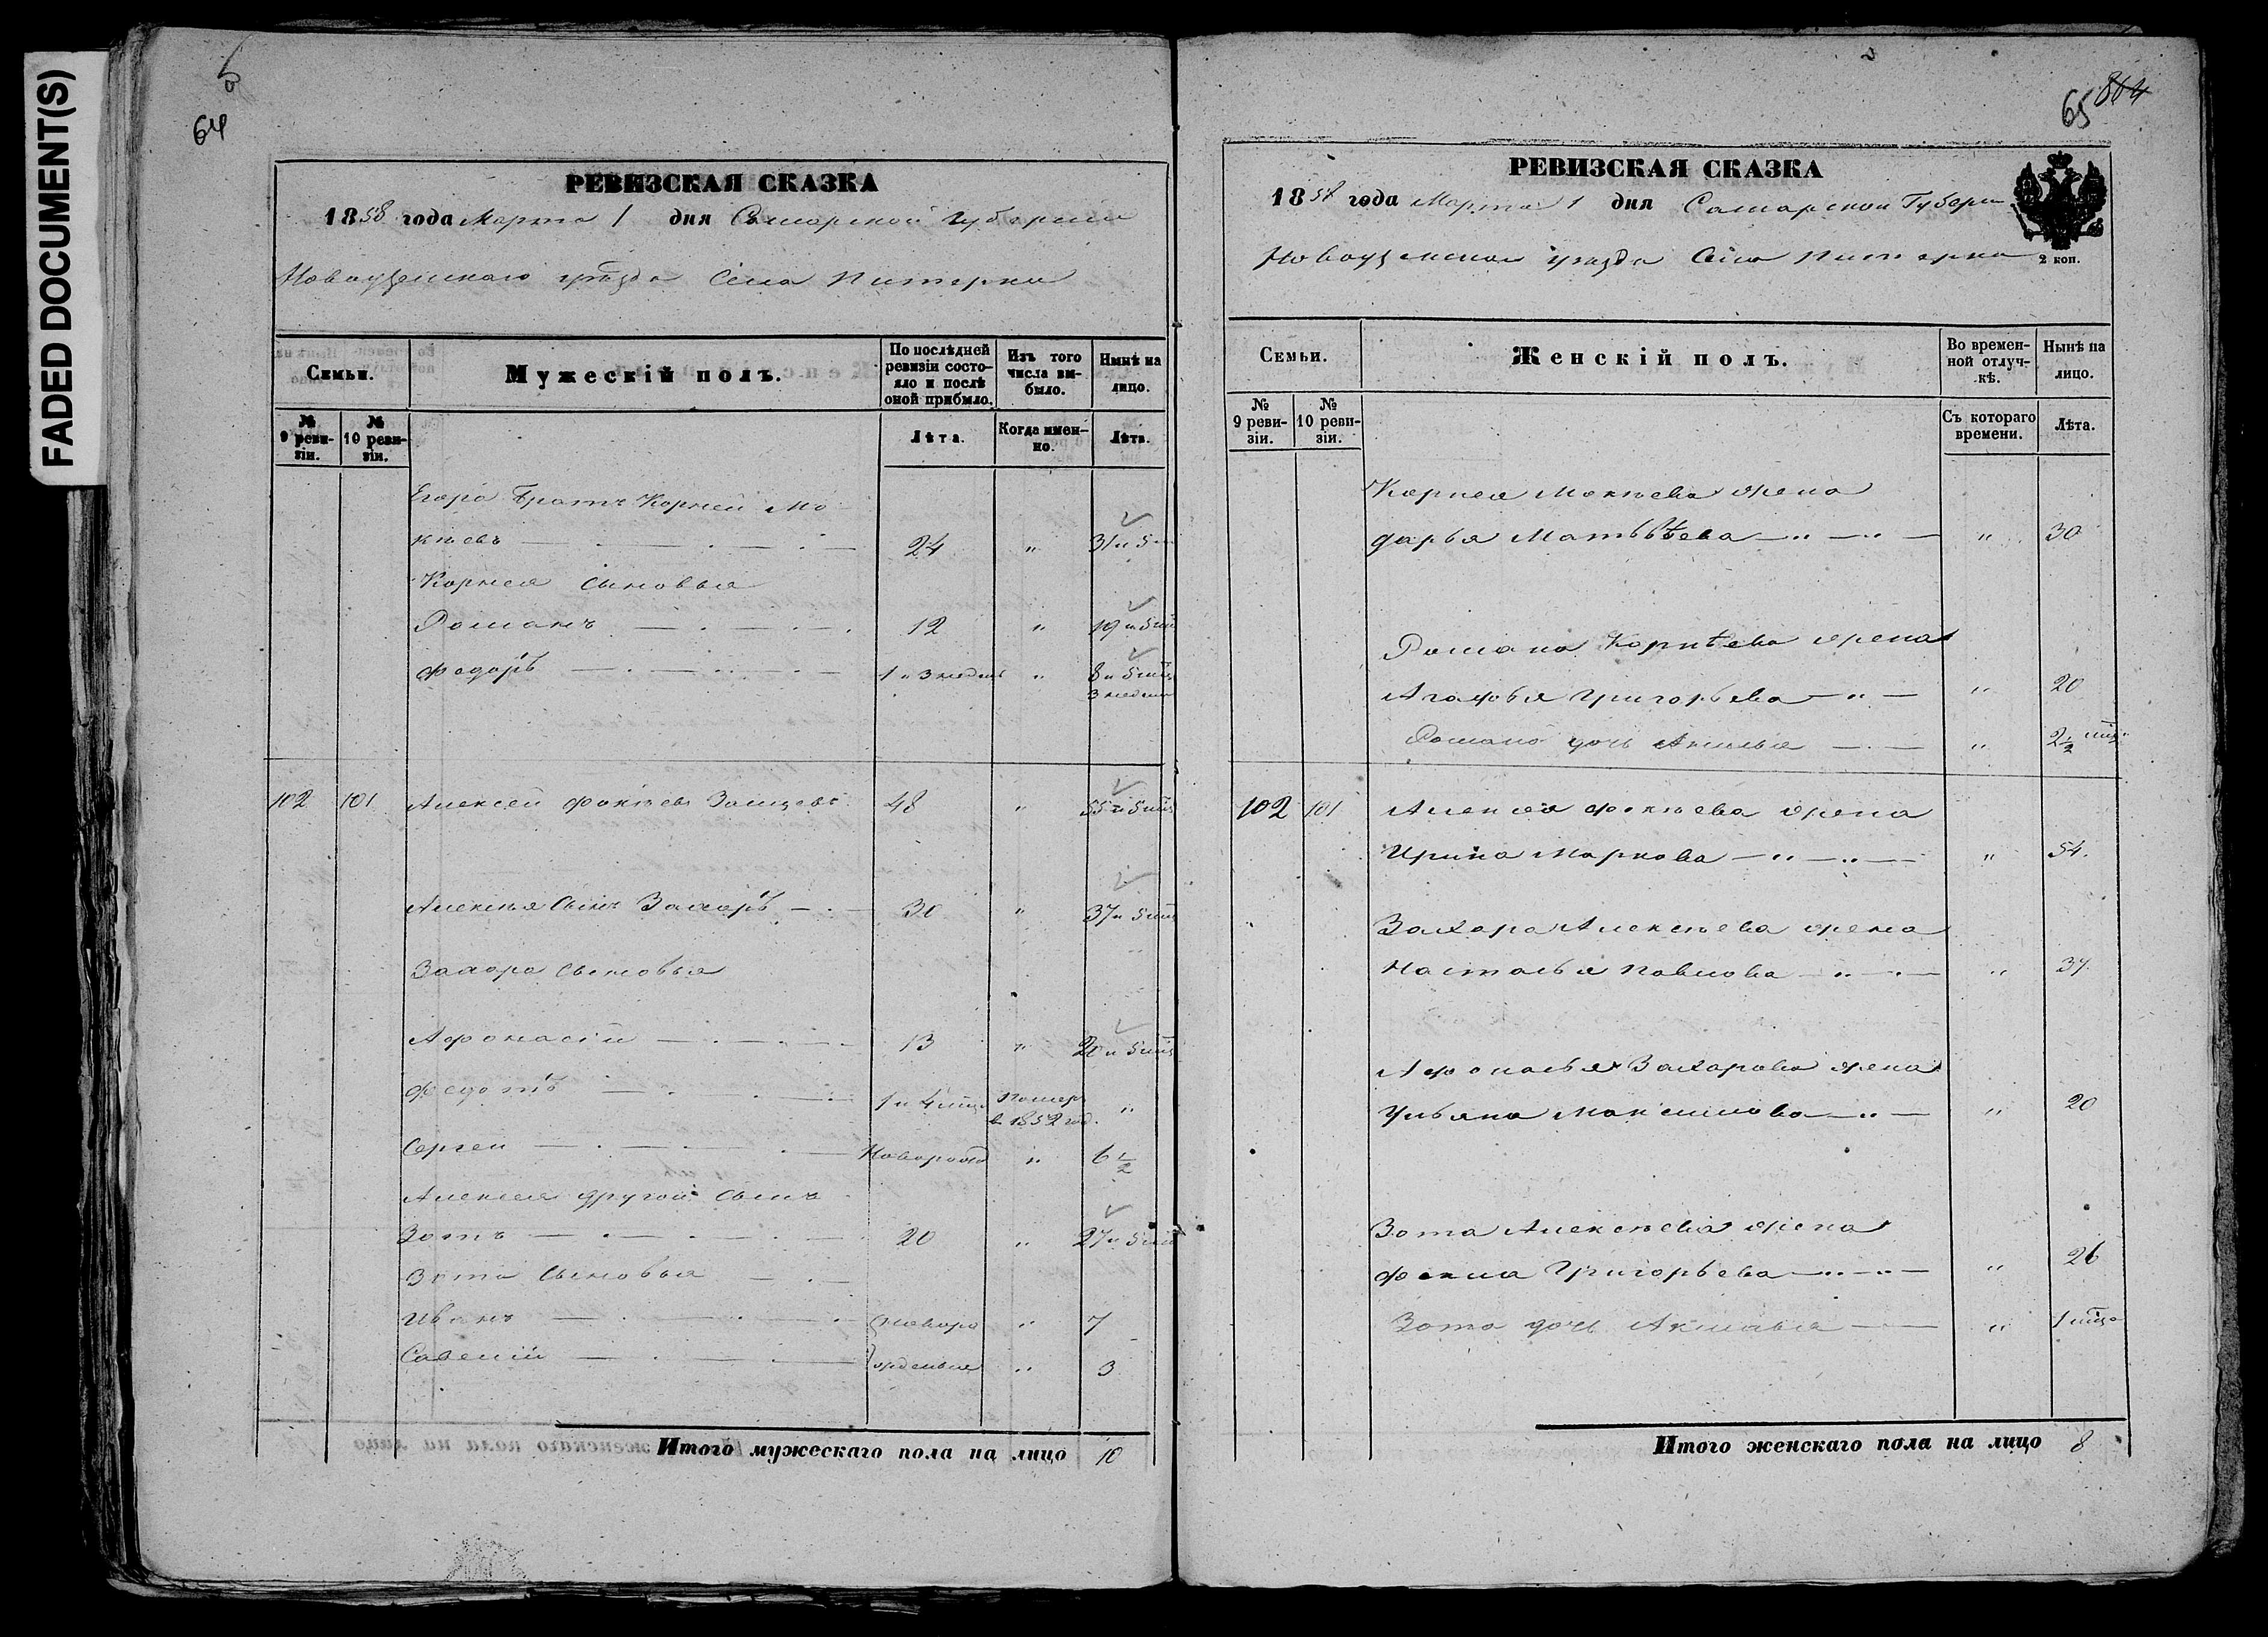 FADED DOCUMENT(S)
64
РЕВИЗСКАЯ СКАЗКА
1858 года Марта 1 дня Самарской Губернии
Новоузенскаго уѣзда Села Питерки
Семьи.
Мужескій полъ.
По послѣдней ревизіи состояло и послѣ оной прибыло.
Изъ того числа выбыло.
Нынѣ на лицо.
№ 9 ревизіи.
№ 10 ревизіи.
Лѣта.
Когда именно.
Лѣта.
Егора братъ Корней Мо
кѣевъ 24 " 31 и 5
Корнея сыновья
Романъ 12 " 19 и 5 мѣс
Федоръ 1 и 3 недѣль " 8 и 5 мѣс
3 недѣли
102 101 Алексей Фокѣевъ 48 " 55 и 5 мѣс
Алексѣя сынъ Захаръ 30 " 37 и 5 мѣс
Захара сыновья
Афонасій 13 " 20 и 5 мѣс
Федотъ 1 и 4 мѣс Помер в 1852 год. "
Сергей Новорожд " 6 1/2
Алексея другой сынъ
Зотъ 20 " 27 и 5 мѣс
Зота сыновья
Иванъ новоро " 7
Савелій жденные " 3
Итого мужескаго пола на лицо 10
65 864
РЕВИЗСКАЯ СКАЗКА
1858 года Марта 1 дня Самарской Губерн
Новоузенскаго уѣзда Села Питерки
2 коп.
Семьи.
Женскій полъ.
Во временной отлучкѣ.
Нынѣ на лицо.
№ 9 ревизіи.
№ 10 ревизіи.
Съ котораго времени.
Лѣта.
Корнея Мокѣева жена
Дарья Матвѣева " 30
Романа Корнѣева жена
Агафья Григорьева " 20
Романа дочь Акилина " 2 1/2 мѣс
102 101 Алексея Фокѣева жена
Ирина Маркова " 54.
Захара Алексѣева жена
Насталья Павлова " 37.
Афонасья Захарова жена
Ульяна Максимова " 20
Зота Алексѣева жена
Фекла Григорьева " 26
Зота дочь " 1 мѣс
Итого женскаго пола на лицо 8